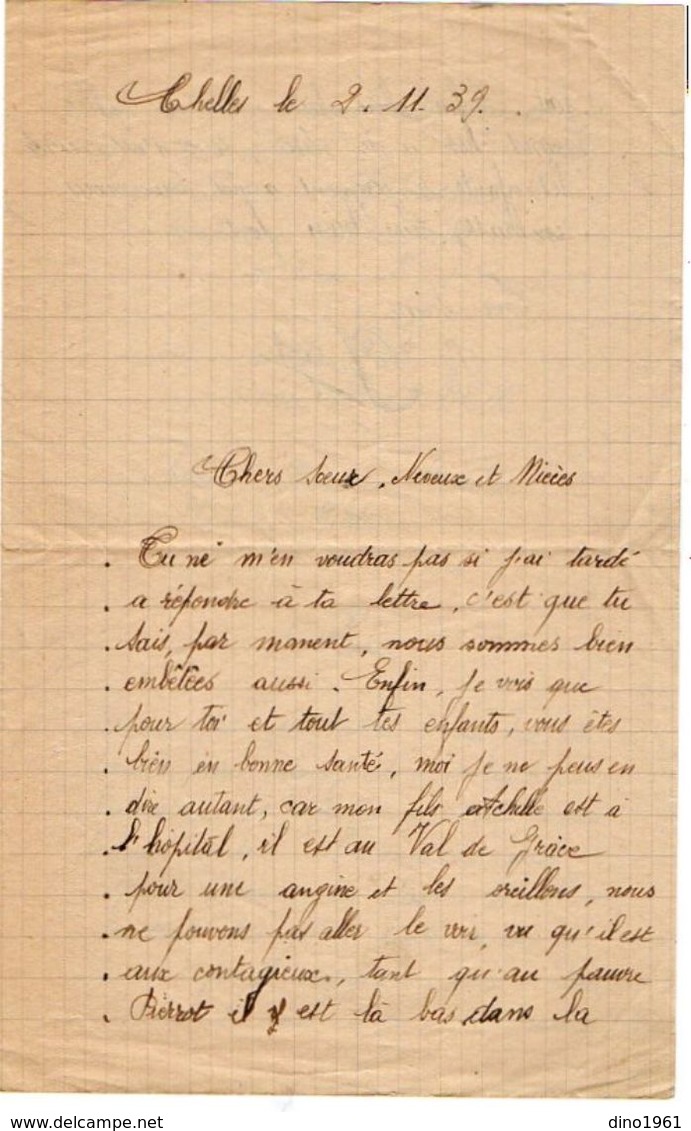 Chelles le 2. 11. 39.
Chers Soeur, Neveux et Nièces
Tu ne m'en voudras pas si j'ai tardé
a répondre à ta lettre, c'est que tu
sais, par manent, nous sommes bien
embêtées aussi. Enfin, je vois que
pour toi et tout tes enfants, vous êtes
bien en bonne santé, moi je ne peus en
dire autant, car mon fils Achille est à
l'hôpital, il est au Val de Grâce
pour une angine et les oreillons, nous
ne pouvons pas aller le voir, vu qu'il est
aux contagieux, tant qu'au pauvre
Pierrot il y est là bas, dans la
www.delcampe.net
dino1961